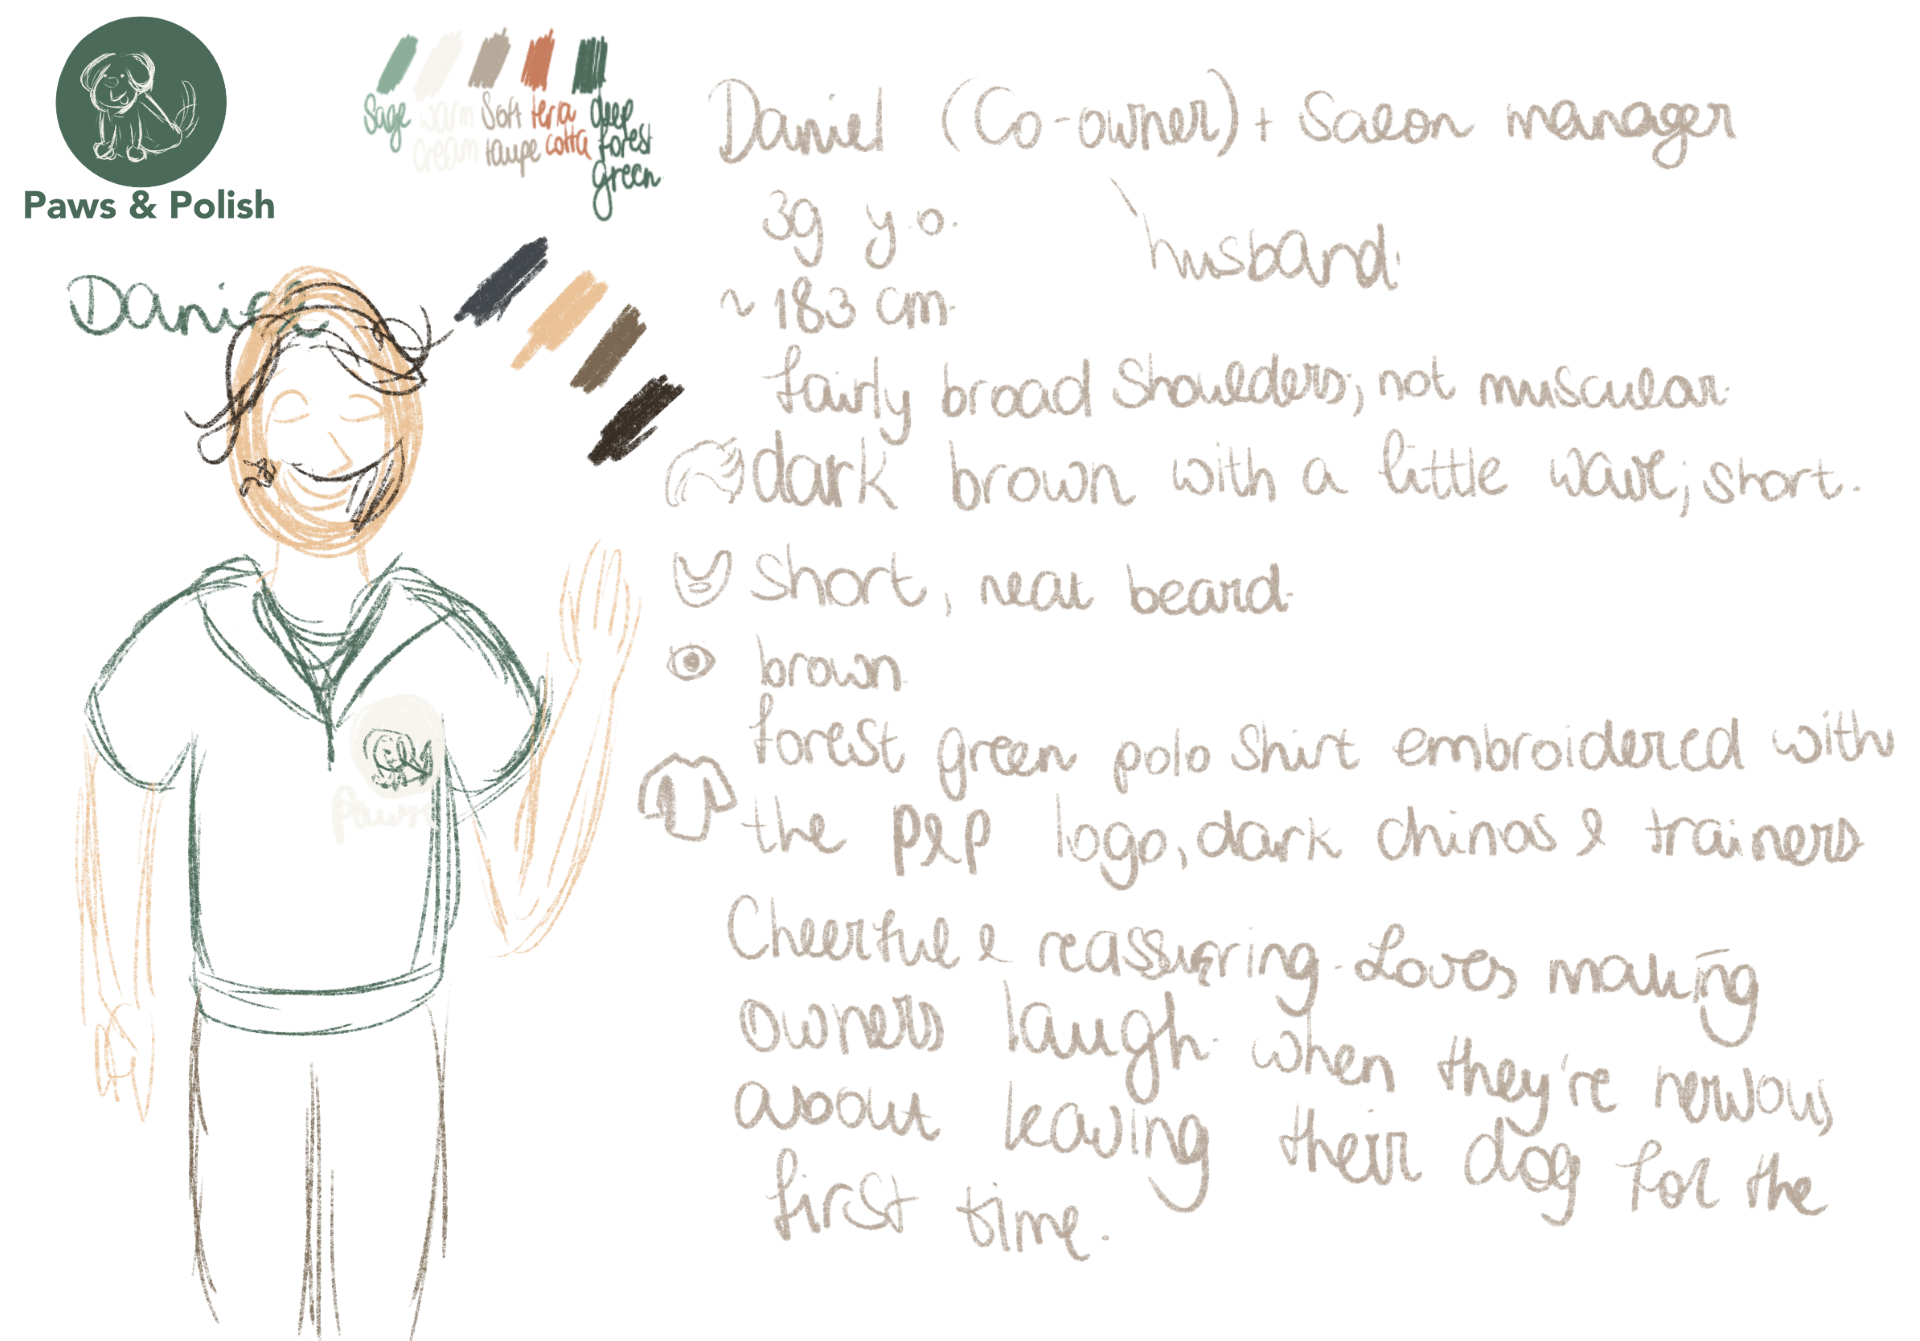 Paws & Polish
Sage
warm cream
Soft taupe
terra cotta
deep forest green
Daniel
Paws
Daniel (Co-owner) + Salon manager
husband.
39 y.o.
~ 183 cm.
fairly broad shoulders; not muscular.
dark brown with a little wave; short.
short, neat beard.
brown.
forest green polo shirt embroidered with
the P&P logo, dark chinos & trainers
Cheerful & reassuring. Loves making
owners laugh when they're nervous
about leaving their dog for the
first time.